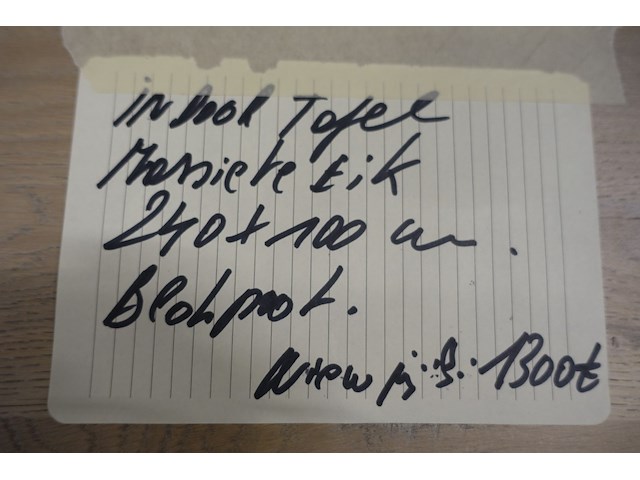 INDOOR Tafel
Massieve Eik
240 x 100 cm.
Blokpoot.
Nieuw prijs: 1300€